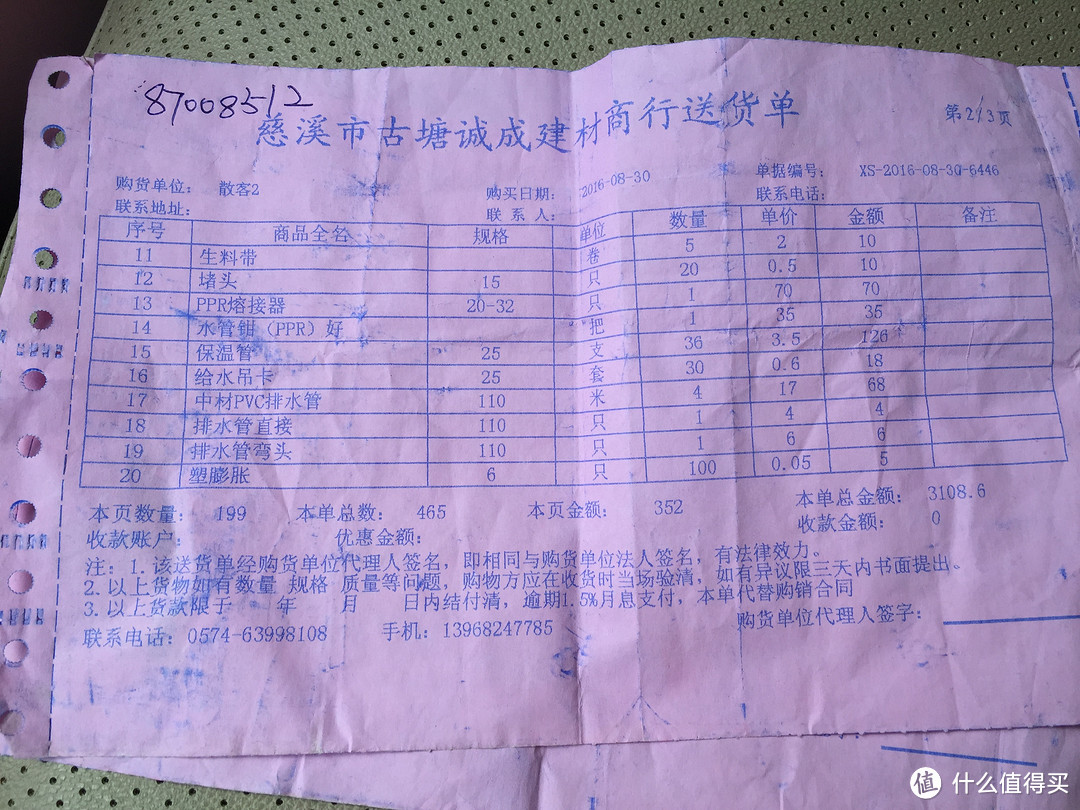 87008512
慈溪市古塘诚成建材商行送货单
第2/3页
购货单位： 散客2 购买日期： 2016-08-30 单据编号： XS-2016-08-30-6446
联系地址： 联系人： 联系电话：
序号 商品全名 规格 单位 数量 单价 金额 备注
11 生料带 卷 5 2 10
12 堵头 15 只 20 0.5 10
13 PPR熔接器 20-32 只 1 70 70
14 水管钳（PPR）好 把 1 35 35
15 保温管 25 支 36 3.5 126
16 给水吊卡 25 套 30 0.6 18
17 中材PVC排水管 110 米 4 17 68
18 排水管直接 110 只 1 4 4
19 排水管弯头 110 只 1 6 6
20 塑膨胀 6 只 100 0.05 5
本页数量： 199 本单总数： 465 本页金额： 352 本单总金额： 3108.6
收款账户： 优惠金额： 收款金额： 0
注：1.该送货单经购货单位代理人签名，即相同与购货单位法人签名，有法律效力。
2.以上货物如有数量 规格 质量等问题，购物方应在收货时当场验清，如有异议限三天内书面提出。
3.以上货款限于 年 月 日内结付清，逾期1.5%月息支付，本单代替购销合同
联系电话：0574-63998108 手机：13968247785 购货单位代理人签字：
值 什么值得买